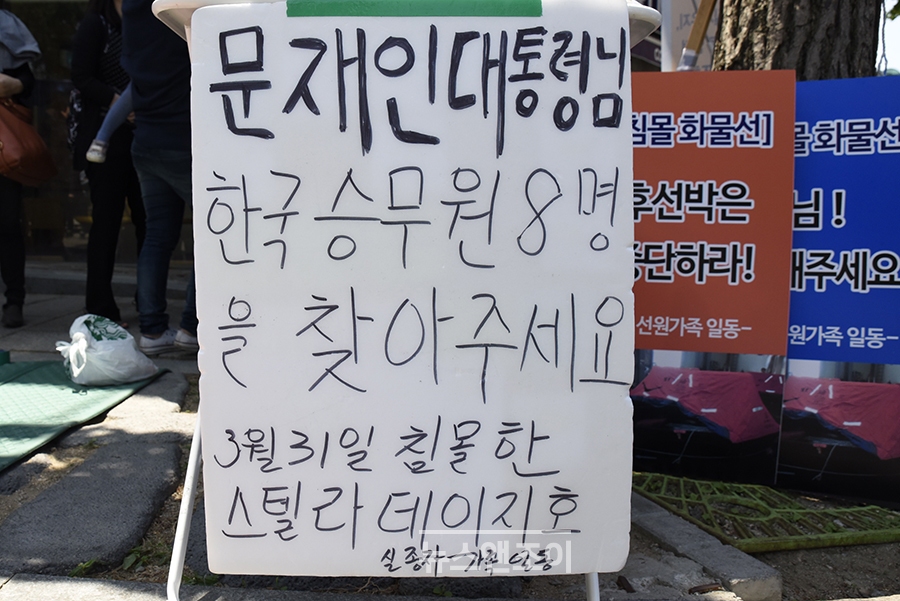 문재인대통령님
한국승무원 8명
을 찾아주세요
3월31일 침몰한
스텔라데이지호
실종자 가족 일동
뉴스앤조이
침몰 화물선]
후선박은
중단하라!
선원가족 일동-
몰 화물선
님!
해주세요
원가족 일동-